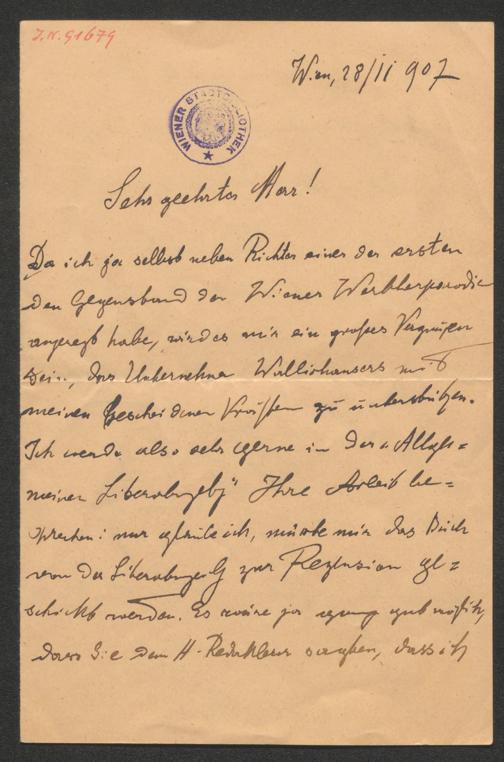 J.N. 91679
Wien, 28/II 907
WIENER STADTBIBLIOTHEK
Sehr geehrter Herr!
Da ich ja selbst neben Richter einer der ersten
den Gegenstand der Wiener Wertherparodie
angeregt habe, wird es mir ein großes Vergnügen
sein, das Unternehmen Wallishaussers mit
meinen bescheidenen Kräften zu unterstützen.
Ich werde also sehr gerne in der „Allge=
meinen Literaturztg" Ihre Arbeit be=
sprechen: nur glaube ich, müsste mir das Buch
von der Literaturztg zur Rezension ge=
schickt werden. Es wäre ja ganz gut möglich,
dass Sie dem H. Redakteur schreiben, dass ich